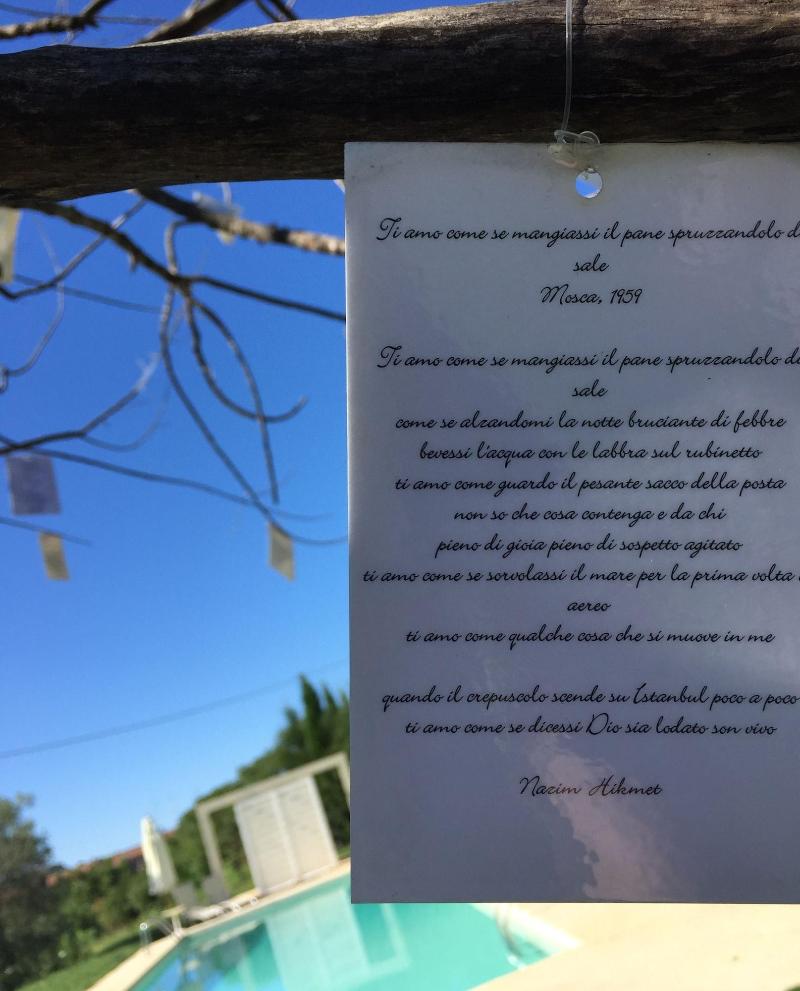 Ti amo come se mangiassi il pane spruzzandolo d
sale
Mosca, 1959
Ti amo come se mangiassi il pane spruzzandolo d
sale
come se alzandomi la notte bruciante di febbre
bevessi l'acqua con le labbra sul rubinetto
ti amo come guardo il pesante sacco della posta
non so che cosa contenga e da chi
pieno di gioia pieno di sospetto agitato
ti amo come se sorvolassi il mare per la prima volta
aereo
ti amo come qualche cosa che si muove in me
quando il crepuscolo scende su Istanbul poco a poco
ti amo come se dicessi Dio sia lodato son vivo
Nazim Hikmet